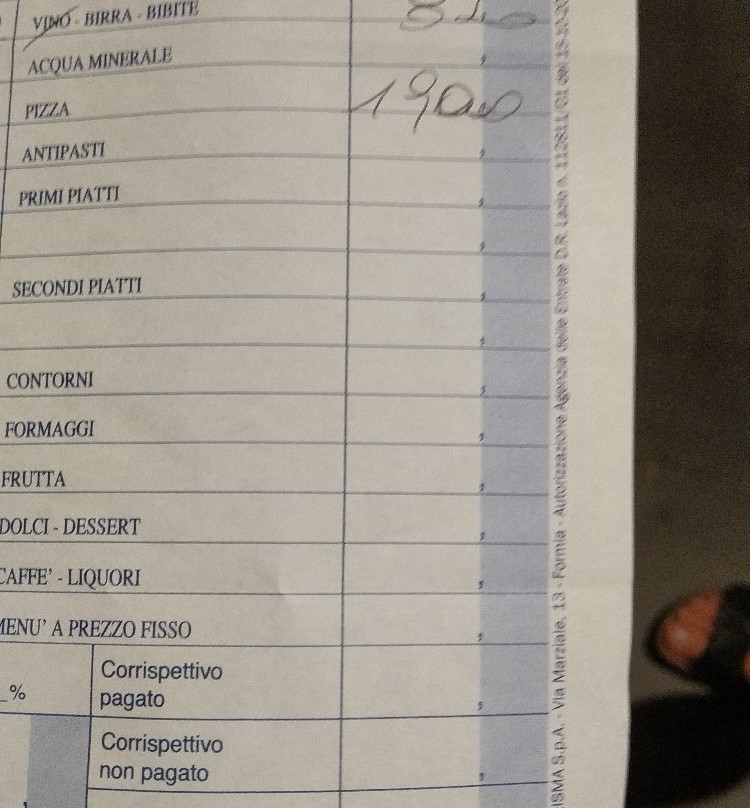 VINO - BIRRA - BIBITE
ACQUA MINERALE
PIZZA 19,00
ANTIPASTI
PRIMI PIATTI
SECONDI PIATTI
CONTORNI
FORMAGGI
FRUTTA
DOLCI - DESSERT
CAFFE' - LIQUORI
MENU' A PREZZO FISSO
% Corrispettivo
pagato
Corrispettivo
non pagato
ISMA S.p.A. - Via Marziale, 13 - Formia - Autorizzazione Agenzia delle Entrate D.R. Lazio n.